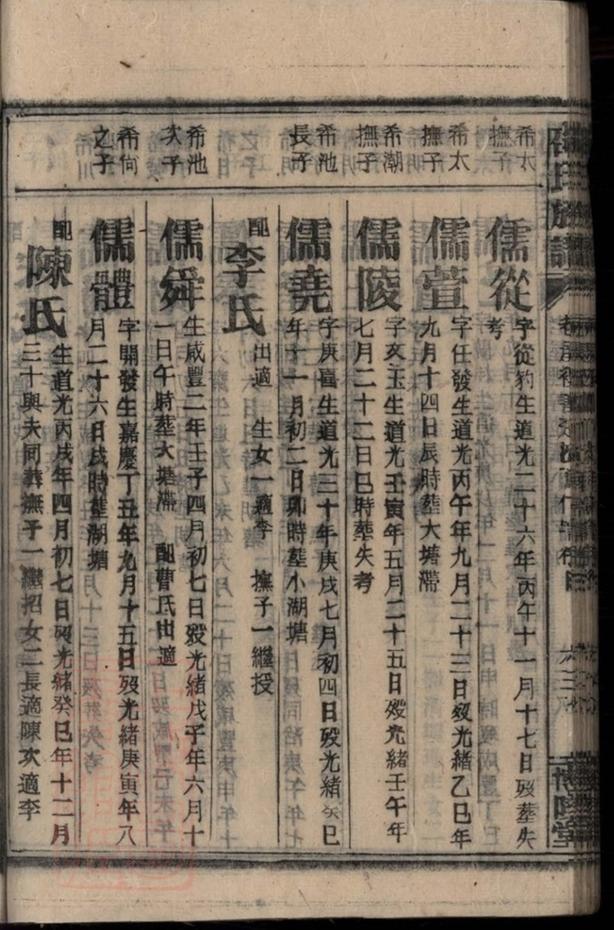 氏族譜
博陵堂
希太
撫子
儒從
字從豹生道光二十六年丙午十一月十七日歿塟失
考
希太
撫子
儒萱
字任發生道光丙午年九月二十三日歿光緒乙巳年
九月十四日辰時塟大塘滯
希潮
撫子
儒陵
字亥玉生道光壬寅年五月二十五日歿光緒壬午年
七月二十二日巳時塟失考
希池
長子
儒堯
字庚喜生道光三十年庚戌七月初四日歿光緒癸巳
年十一月初二日卯時塟小湖塘
配李氏
出適 生女一適李 撫子一繼授
希池
次子
儒舜
生咸豐二年壬子四月初七日歿光緒戊子年六月十
一日午時塟大塘滯 配曹氏出適
希尚
之子
儒體
字開發生嘉慶丁丑年九月十五日歿光緒庚寅年八
月二十六日戌時塟湖塘
配陳氏
生道光丙戌年四月初七日歿光緒癸巳年十二月
三十與夫同塟撫子一繼招女二長適陳次適李